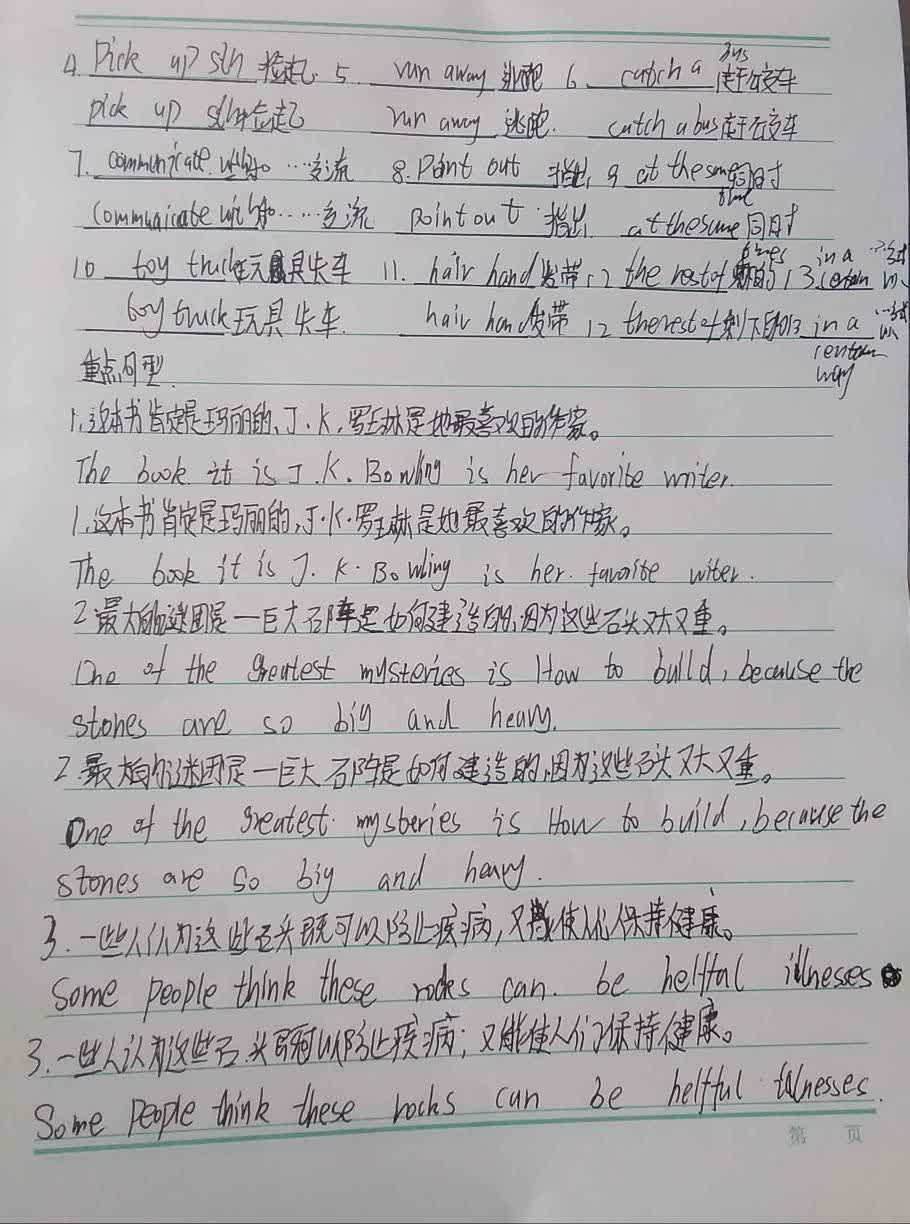 4. Pick up sth 捡起. 5. run away 逃跑 6. catch a bus 赶公交车
pick up sth 捡起 run away 逃跑. catch a bus 赶公交车
7. communicate with sb ……交流 8. Point out 指出 9 at the same time 同时
communicate with sb……交流 point out 指出. at the same 同时
10 toy truck 玩具失车 11. hair hand 发带 12 the rest of 的 13 in a certain
toy truck 玩具失车. hair hand 发带 12 the rest of 剩下的 13 in a certain way
重点句型
1.这本书肯定是玛丽的,J.K.罗琳是她最喜欢的作家。
The book it is J.K. Bowling is her favorite writer.
1.这本书肯定是玛丽的,J·K·罗琳是她最喜欢的作家。
The book it is J. K. Bowling is her. favorite witer.
2 最大的谜团是一巨大石阵是如何建造的,因为这些石头又大又重。
One of the greatest mysteries is How to build, because the
stones are so big and heavy.
2.最大的谜团是一巨大石阵是如何建造的,因为这些石头又大又重。
One of the greatest mysteries is How to build, because the
stones are so big and heavy.
3.一些人认为这些石头既可以防止疾病,又能使人们保持健康。
Some people think these rocks can. be helfful illnesses
3.一些人认为这些石头可以防止疾病;又能使人们保持健康。
Some People think these rocks can be helfful
第 页